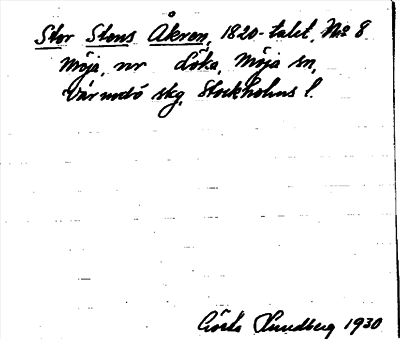 Stor Stens Åkren, 1820-talet, No 8
Möja, nr Löka, Möja sn,
Värmdö skg, Stockholms l.
Gösta Lundberg 1930